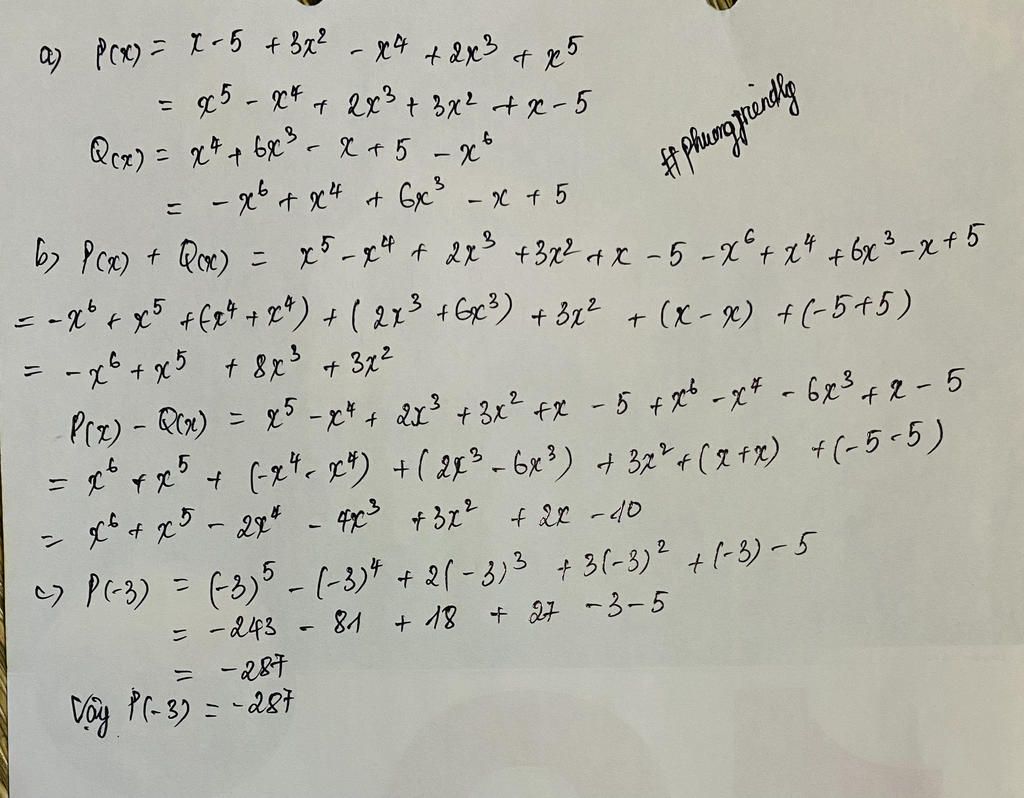 a) P(x) = x - 5 + 3x² - x⁴ + 2x³ + x⁵
= x⁵ - x⁴ + 2x³ + 3x² + x - 5
#phuongfriendly
Q(x) = x⁴ + 6x³ - x + 5 - x⁶
= -x⁶ + x⁴ + 6x³ - x + 5
b) P(x) + Q(x) = x⁵ - x⁴ + 2x³ + 3x² + x - 5 - x⁶ + x⁴ + 6x³ - x + 5
= -x⁶ + x⁵ + (-x⁴ + x⁴) + (2x³ + 6x³) + 3x² + (x - x) + (-5+5)
= -x⁶ + x⁵ + 8x³ + 3x²
P(x) - Q(x) = x⁵ - x⁴ + 2x³ + 3x² + x - 5 + x⁶ - x⁴ - 6x³ + x - 5
= x⁶ + x⁵ + (-x⁴ - x⁴) + (2x³ - 6x³) + 3x² + (x + x) + (-5 - 5)
= x⁶ + x⁵ - 2x⁴ - 4x³ + 3x² + 2x - 10
c) P(-3) = (-3)⁵ - (-3)⁴ + 2(-3)³ + 3(-3)² + (-3) - 5
= -243 - 81 + 18 + 27 - 3 - 5
= -287
Vậy P(-3) = -287